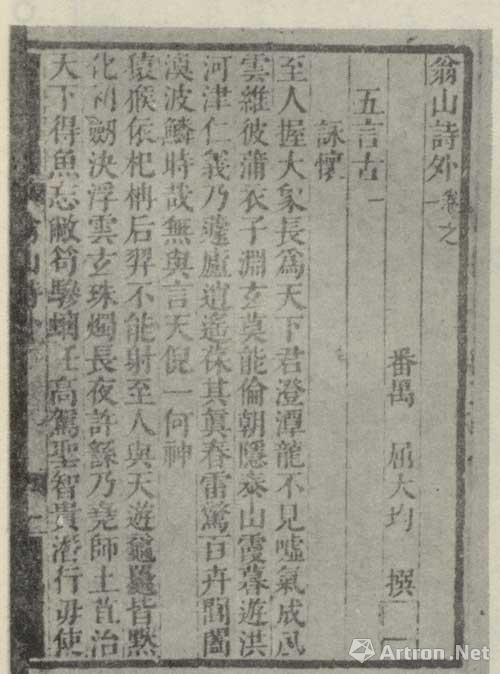 翁山詩外 卷之一
番禺 屈大均 撰
五言古一
詠懷
至人握大象長爲天下君澄潭龍不見噓氣成風
雲維彼蒲衣子淵玄莫能倫朝隱泰山霞暮遊洪
河津仁義乃蘧廬逍遙葆其眞春雷驚百卉闔
波鱗時哉無與言天倪一何神
猿猴依杞枏后羿不能射至人與天遊皆默
化劒決浮雲玄珠燭長夜許繇乃堯師土苴治
天下得魚忘敝笱驂螭任高駕聖智貴潛行毋使
Artron.Net